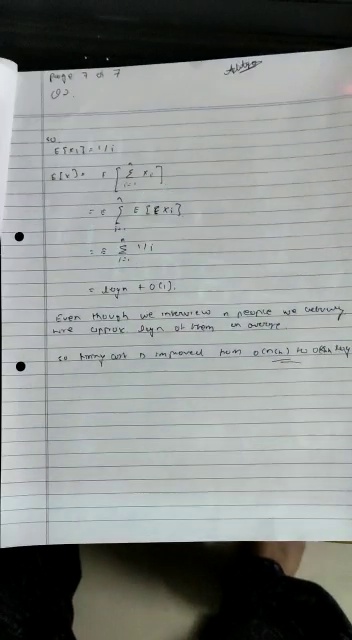 Page 7 of 7
Q2.
so
E[xi] = 1/i
E[x] = E [ n Σ i=1 xi ]
= E n Σ i=1 E[E xi]
= E n Σ i=1 1/i
= logn + O(1).
Even though we interview n people we actually
hire approx logn of them on average
so hiring cost is improved from O(n